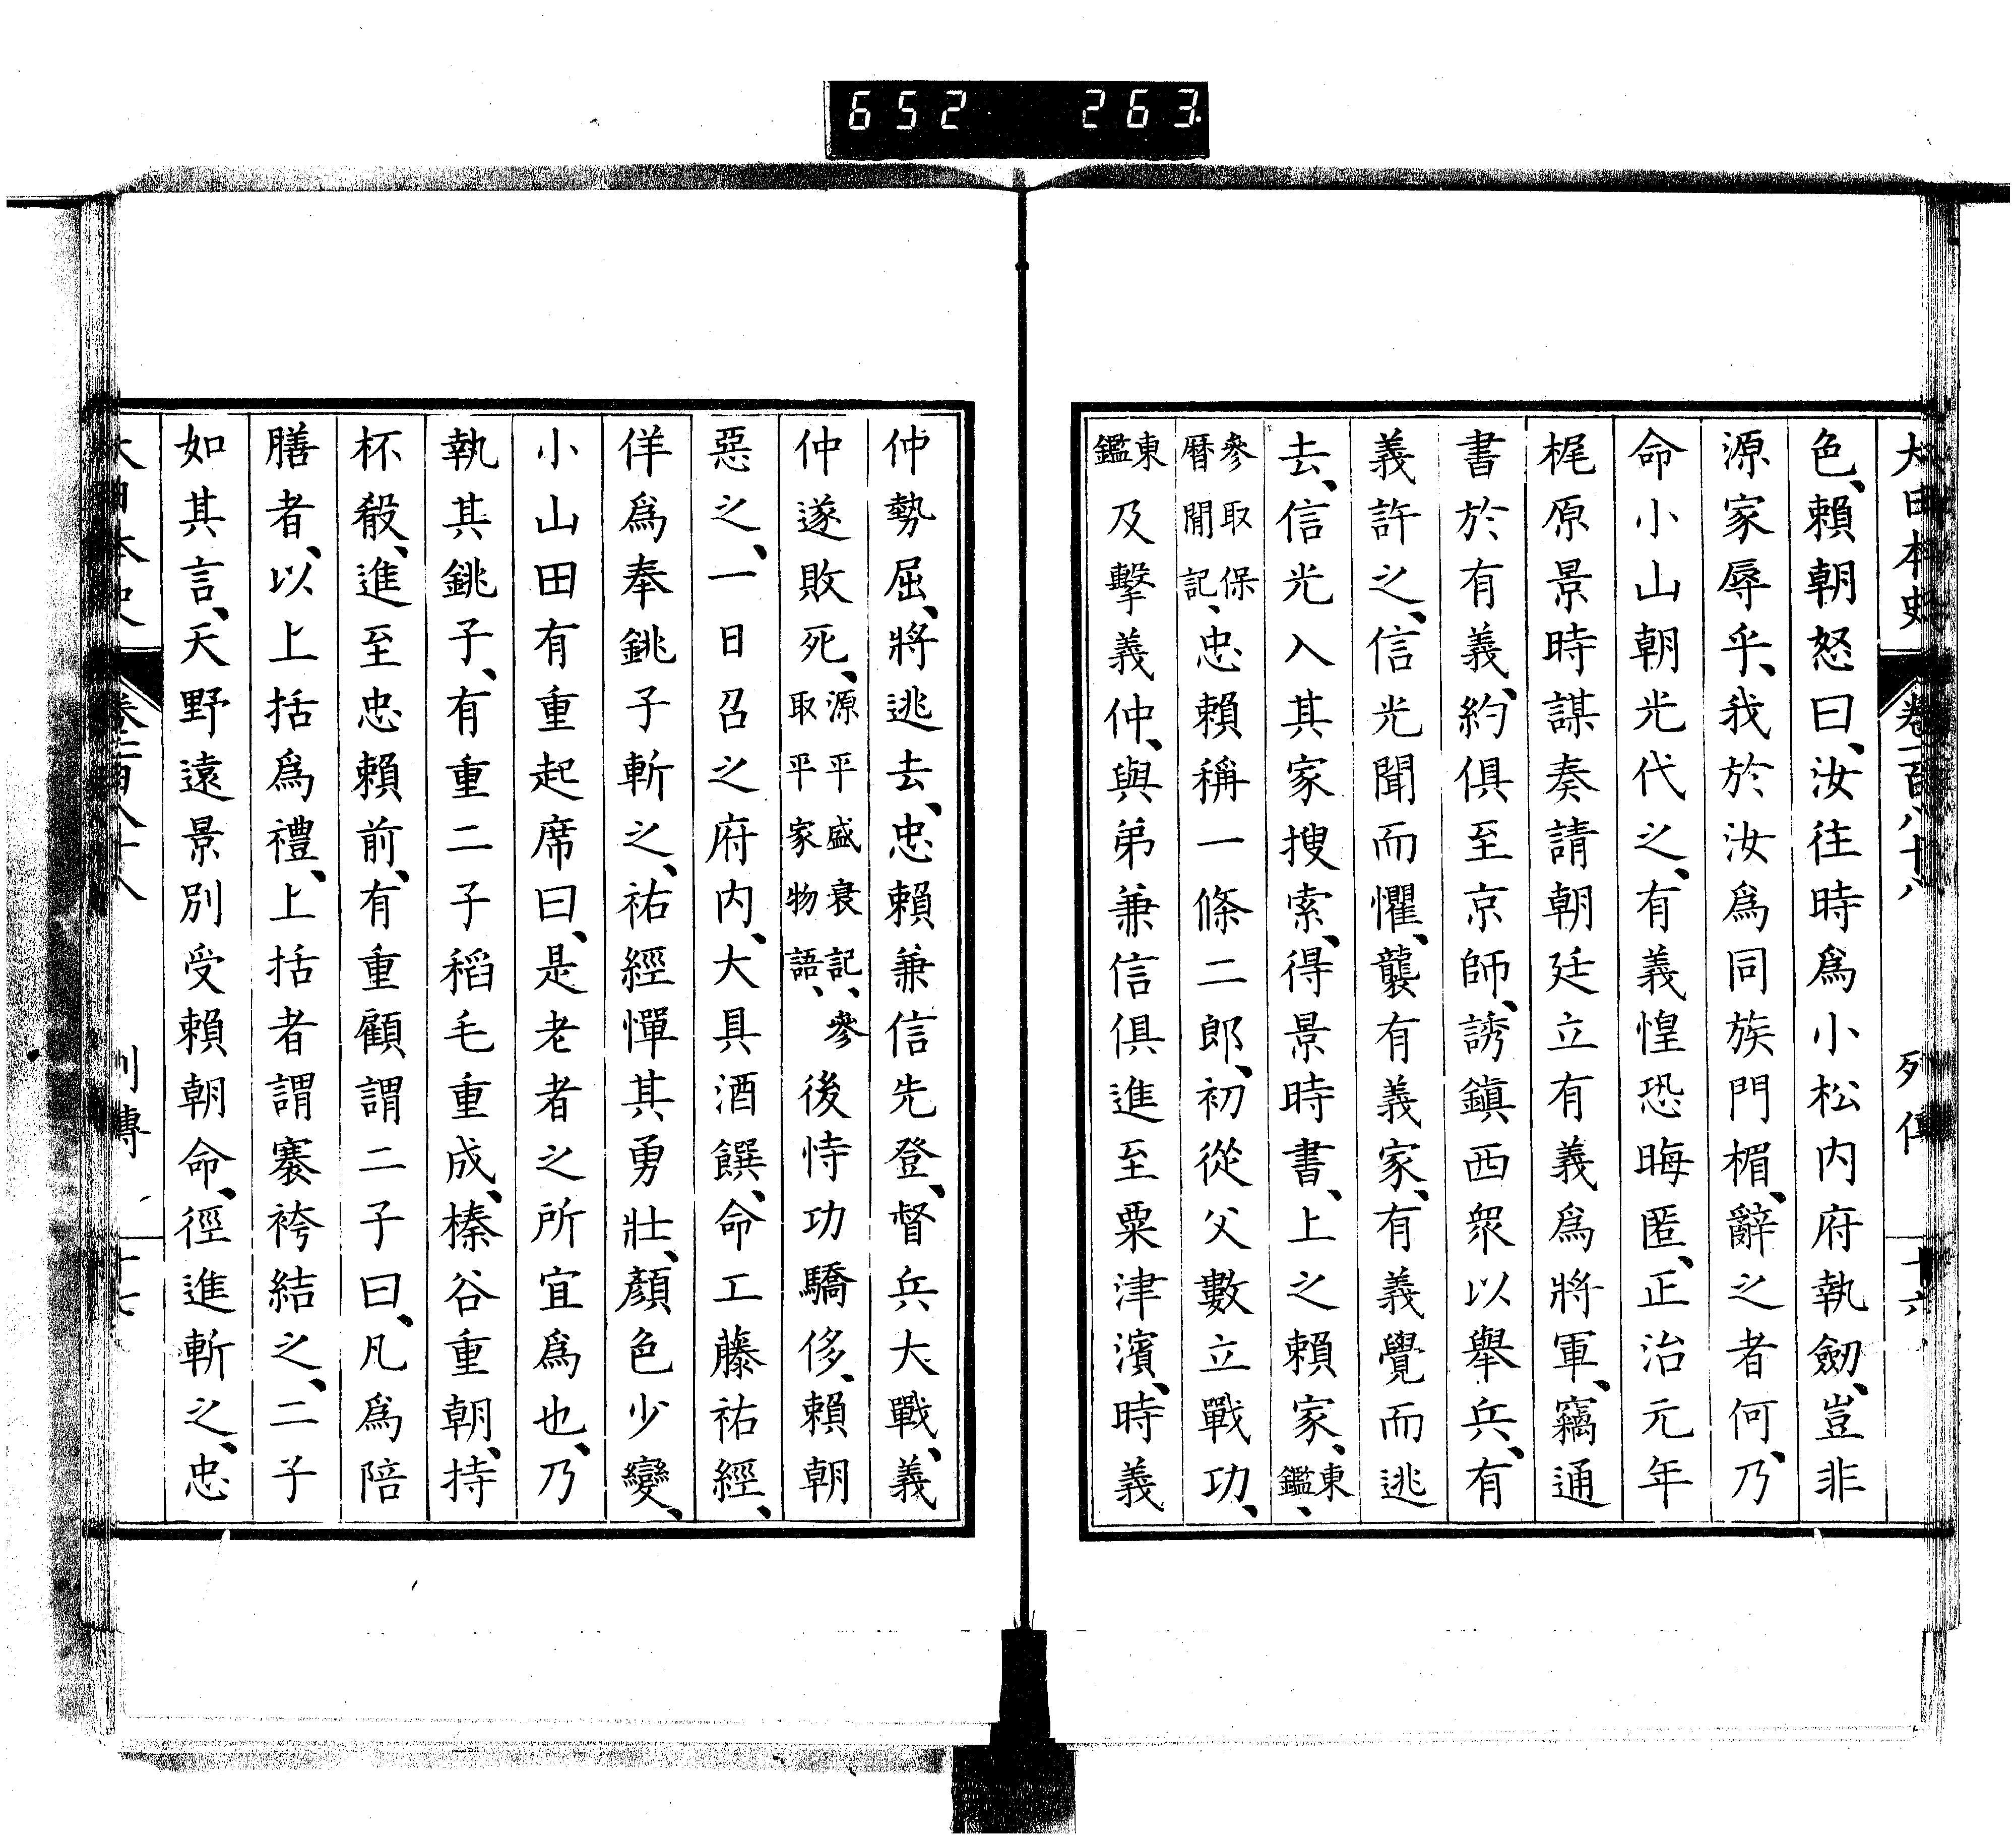 652 263
大日本史 卷一百八十八 列傳 十六
色、賴朝怒曰、汝往時爲小松内府執劒、豈非
源家辱乎、我於汝爲同族門楣、辭之者何、乃
命小山朝光代之、有義惶恐晦匿、正治元年
梶原景時謀奏請朝廷立有義爲將軍、竊通
書於有義、約俱至京師、誘鎭西衆以擧兵、有
義許之、信光聞而懼、襲有義家、有義覺而逃
去、信光入其家搜索、得景時書、上之賴家、東鑑、
參取保曆閒記、忠賴稱一條二郎、初從父數立戰功、
東鑑及擊義仲、與弟兼信俱進至粟津濱、時義
仲勢屈、將逃去、忠賴兼信先登、督兵大戰、義
仲遂敗死、源平盛衰記、參取平家物語、後恃功驕侈、賴朝
惡之、一日召之府内、大具酒饌、命工藤祐經、
佯爲奉銚子斬之、祐經憚其勇壯、顏色少變、
小山田有重起席曰、是老者之所宜爲也、乃
執其銚子、有重二子稻毛重成、榛谷重朝、持
杯殽、進至忠賴前、有重顧謂二子曰、凡爲陪
膳者、以上括爲禮、上括者謂褰袴結之、二子
如其言、天野遠景別受賴朝命、徑進斬之、忠
大日本史 卷一百八十八 列傳 十七